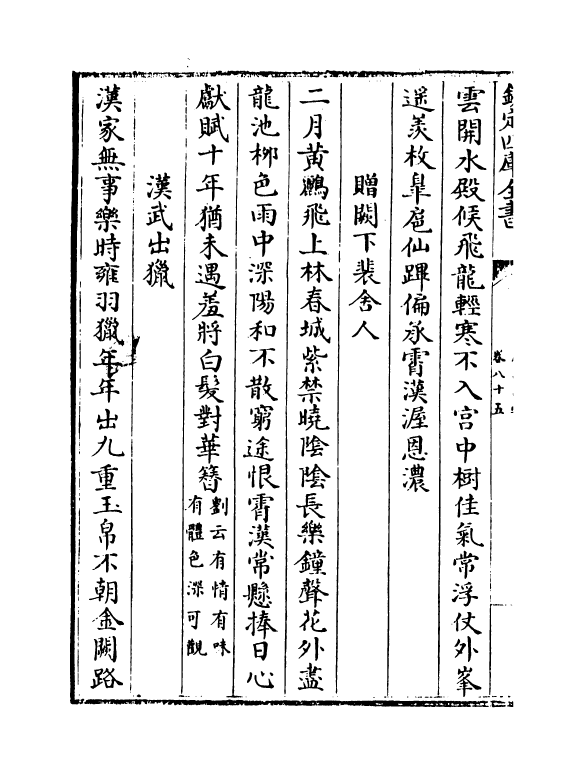 欽定四庫全書
卷八十五
雲開水殿候飛龍輕寒不入宫中樹佳氣常浮仗外峯
遥羡枚臯扈仙蹕偏承霄漢渥恩濃
贈闕下裴舍人
二月黄鸝飛上林春城紫禁曉隂隂長樂鐘聲花外盡
龍池栁色雨中深陽和不散窮途恨霄漢常懸捧日心
獻賦十年猶未遇羞將白髮對華簪劉云有情有味
有體色深可觀
漢武出獵
漢家無事樂時雍羽獵年年出九重玉帛不朝金闕路